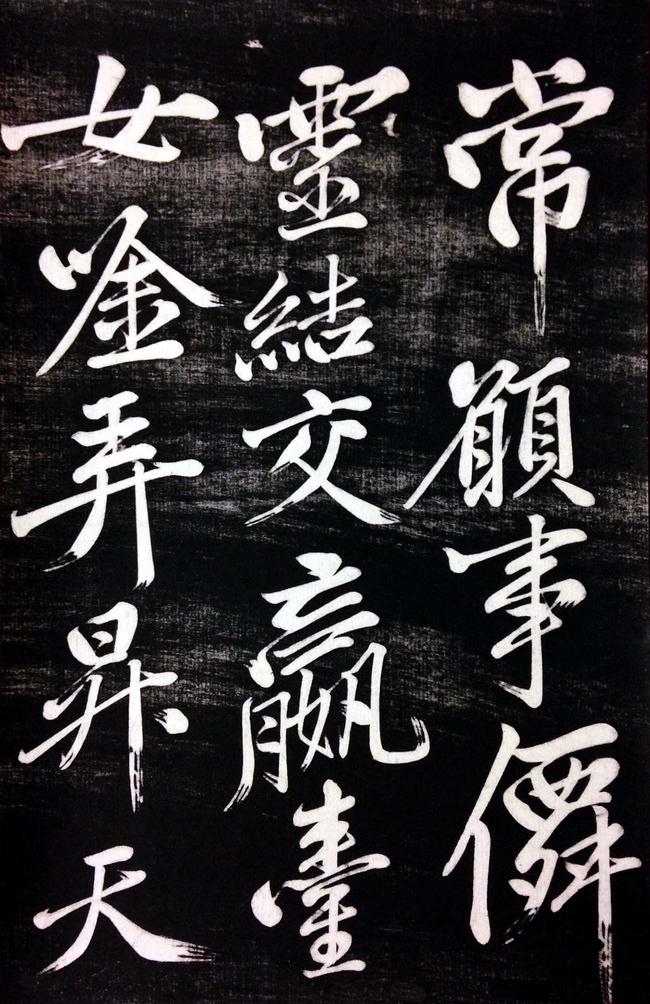 常願事僊
靈結交嬴臺
女唫弄昇天